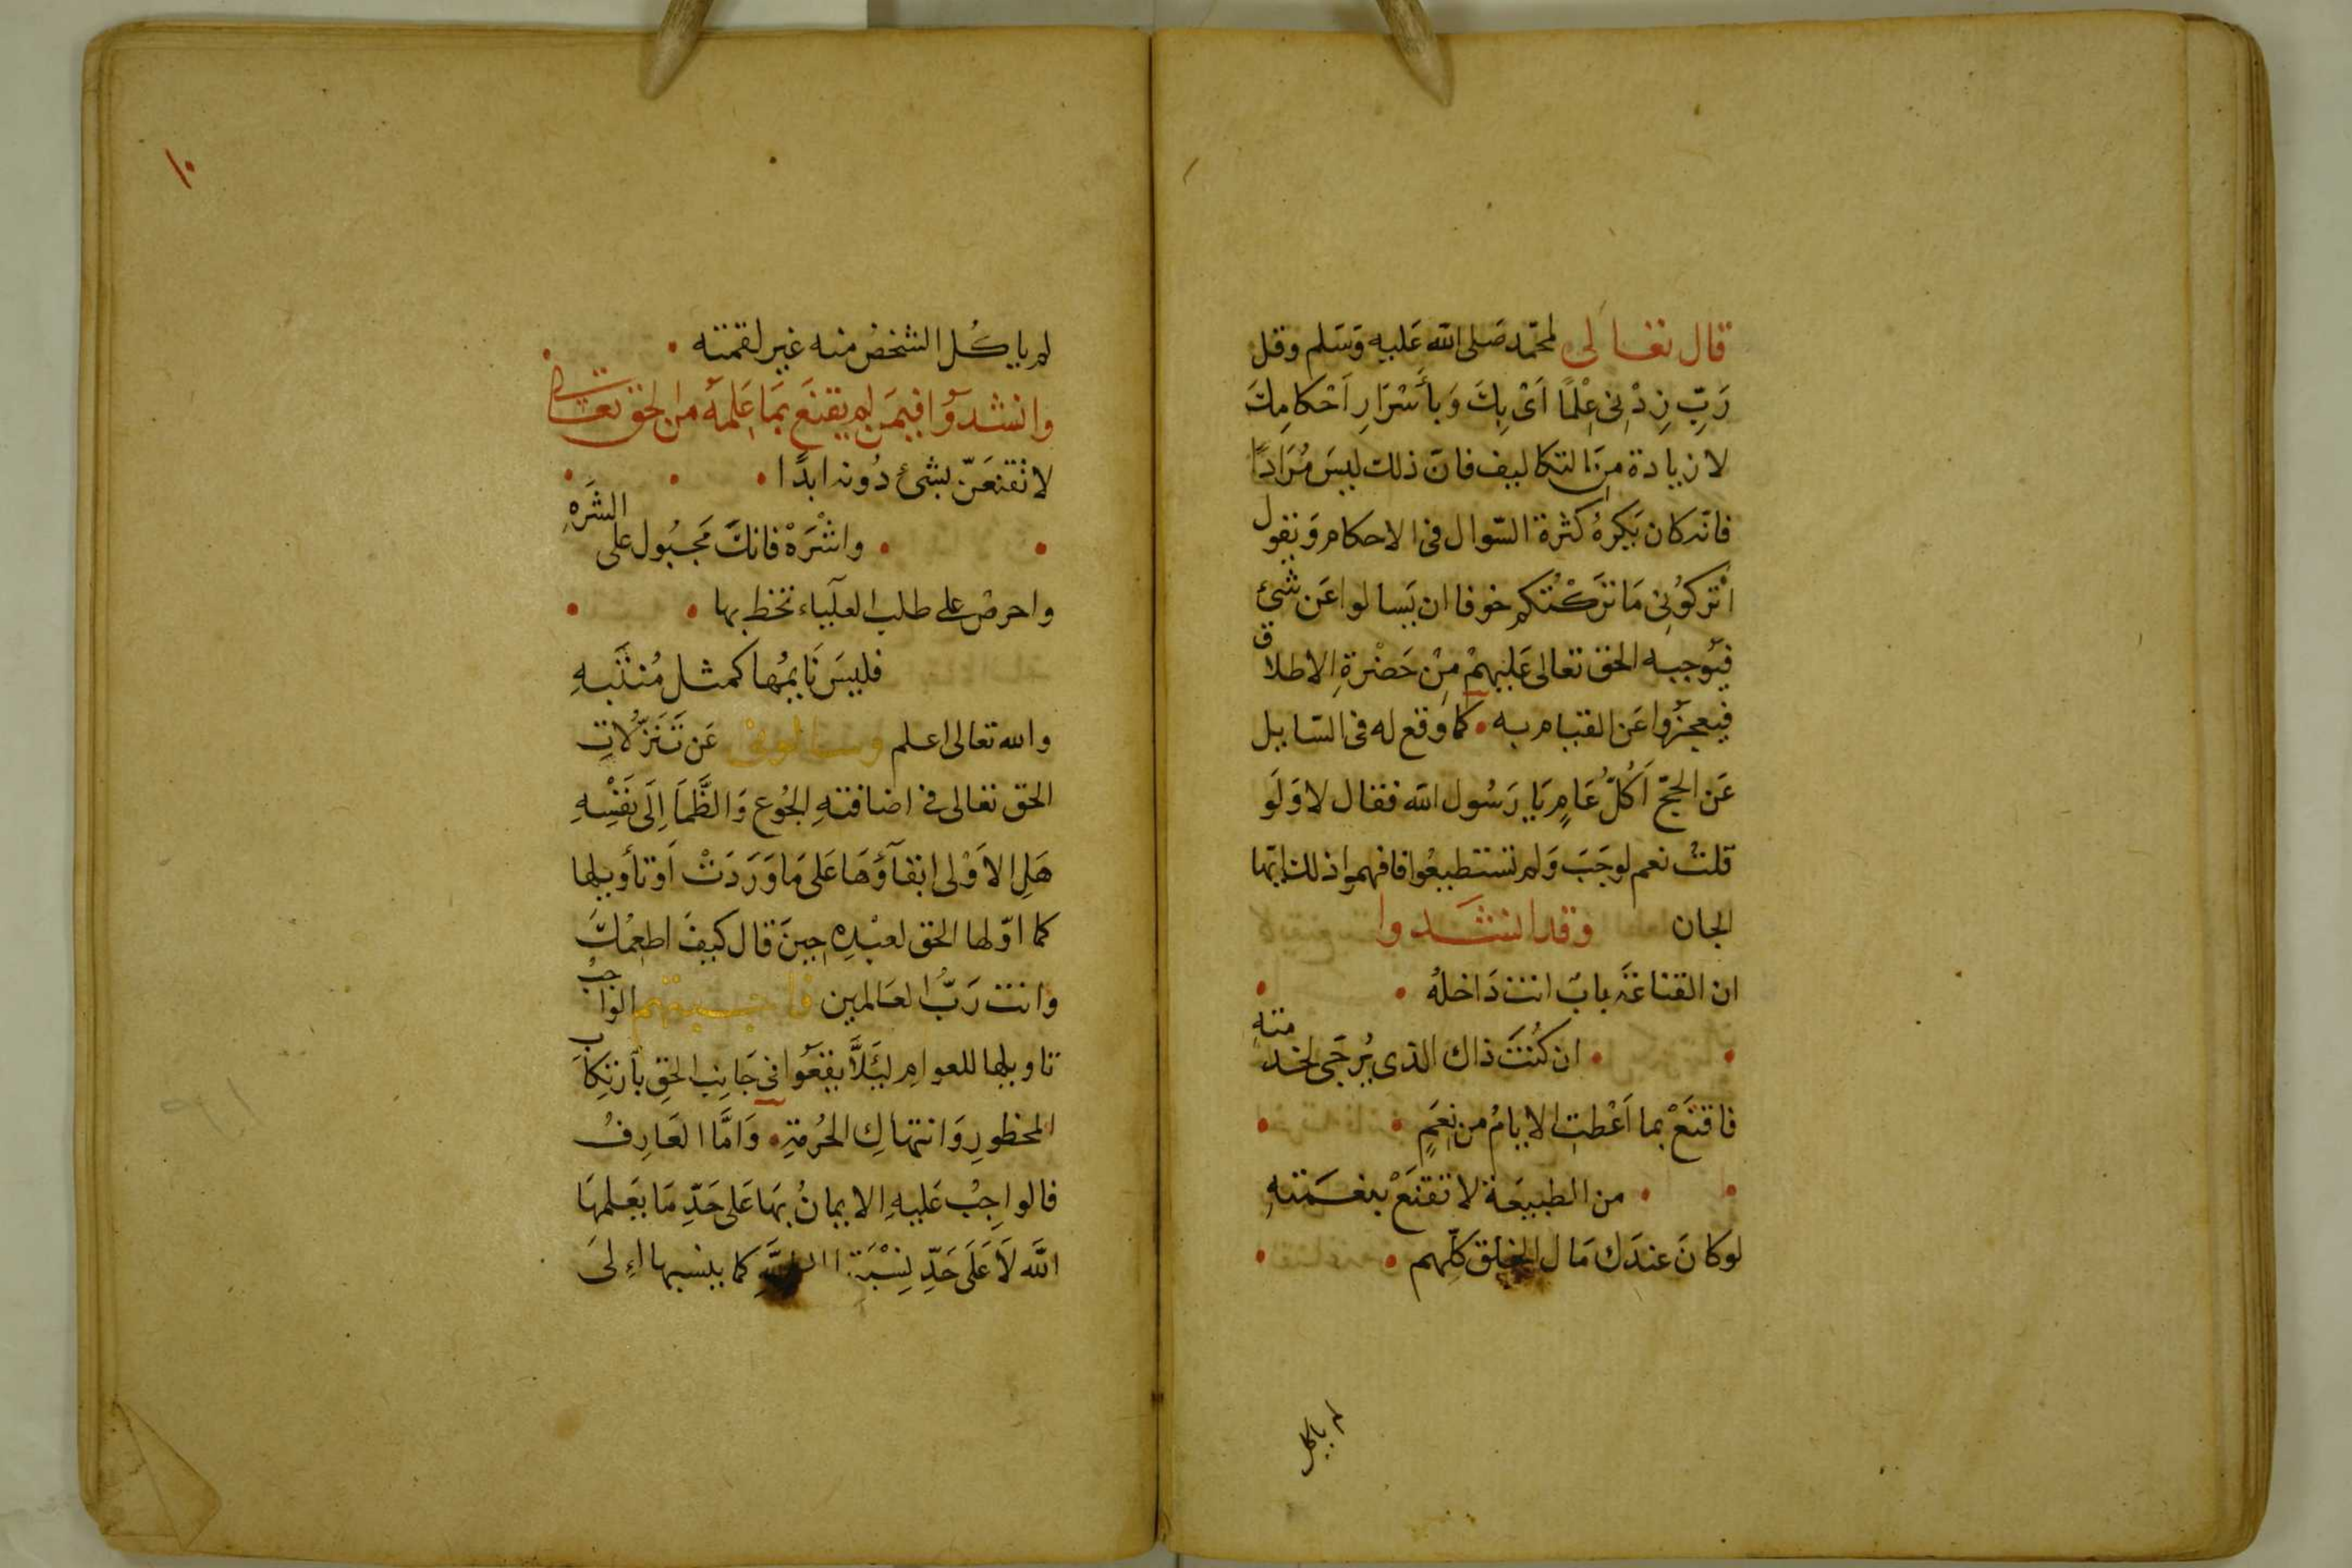 قال تعالى لمحمّد صَلى الله عَليهِ وَسَلم وقل
رَبِّ زِدْنِى عِلْمًا اَىْ بِكَ وَبأَسْرَارِ اَحْكامِكَ
لا زيادة مِنَ التكاليف فانّ ذلك ليسَ مُرَادًا
فانّه كان يَكرهُ كثرة السّوال فى الاحكام وَيقول
اُتْركوُنِى مَا تَرَكْتُكم خوفا ان يَسالوا عَن شئ
فيُوجبه الحق تعالى عَليهمْ مِنْ حَضْرةِ الاطلاق
فيعجزُوا عَن القيام به كما وَقع له فى السّايل
عَن الحجّ اَكُلَّ عَامٍ يَا رَسُول الله فقال لا وَلَو
قلتُ نعم لوجَبَ وَلم تستطيعُوا فافهموا ذلك ايّها
الجان وقد انشدوا
ان القناعَة بابٌ انت دَاخلهُ
ان كُنتَ ذاك الذى يُرجَى لخدمتهِ
فاقنَعْ بما اَعْطت الايامُ من نِعَمٍ
من الطبيعَة لا تقنَعْ بنعمَتهِ
لو كانَ عندَك مَال الخلق كلّهم
لم ياكل
١٠
لم ياكُل الشخصُ منه غير لقمته
وانشدوُا فيمَن لم يقنَع بمَا عَلمهُ من الحق تعالى
لا تقنعَنّ بشئ دُونه ابدًا
واشْرَهْ فانكَ مَجبُول على الشَرَهِ
واحرصْ على طلب العلياء تحظ بها
فليسَ نَايمُها كمثل مُنتَبهِ
والله تعالى اعلم وسالونى عَن تَنَزّلاتِ
الحق تعالى فى اضافتهِ الجُوع وَالظَّمَا اِلَى نفَسِهِ
هَلِ الاَوْلى ابقآؤُهَا عَلى مَا وَرَدَتْ اَو تأويلها
كما اوّلها الحق لعَبْدِهِ حِينَ قال كيفَ اطعِمُكَ
وانت رَبُّ العَالمين فاجبتهم الواجبُ
تاويلها للعوامِ ليَلاَّ يقعَوا فى جَانِب الحقِ بأرتكاب
المحظورِ وَانتهاكِ الحُرمَةِ وَامَّا العَارِفُ
فالواجِبُ عَليهِ الايمانُ بهَا عَلى حَدِّ مَا يَعلمهَا
الله لَا عَلَى حَدِّ نِسْبَةِ كما ينسبها اِلىَ